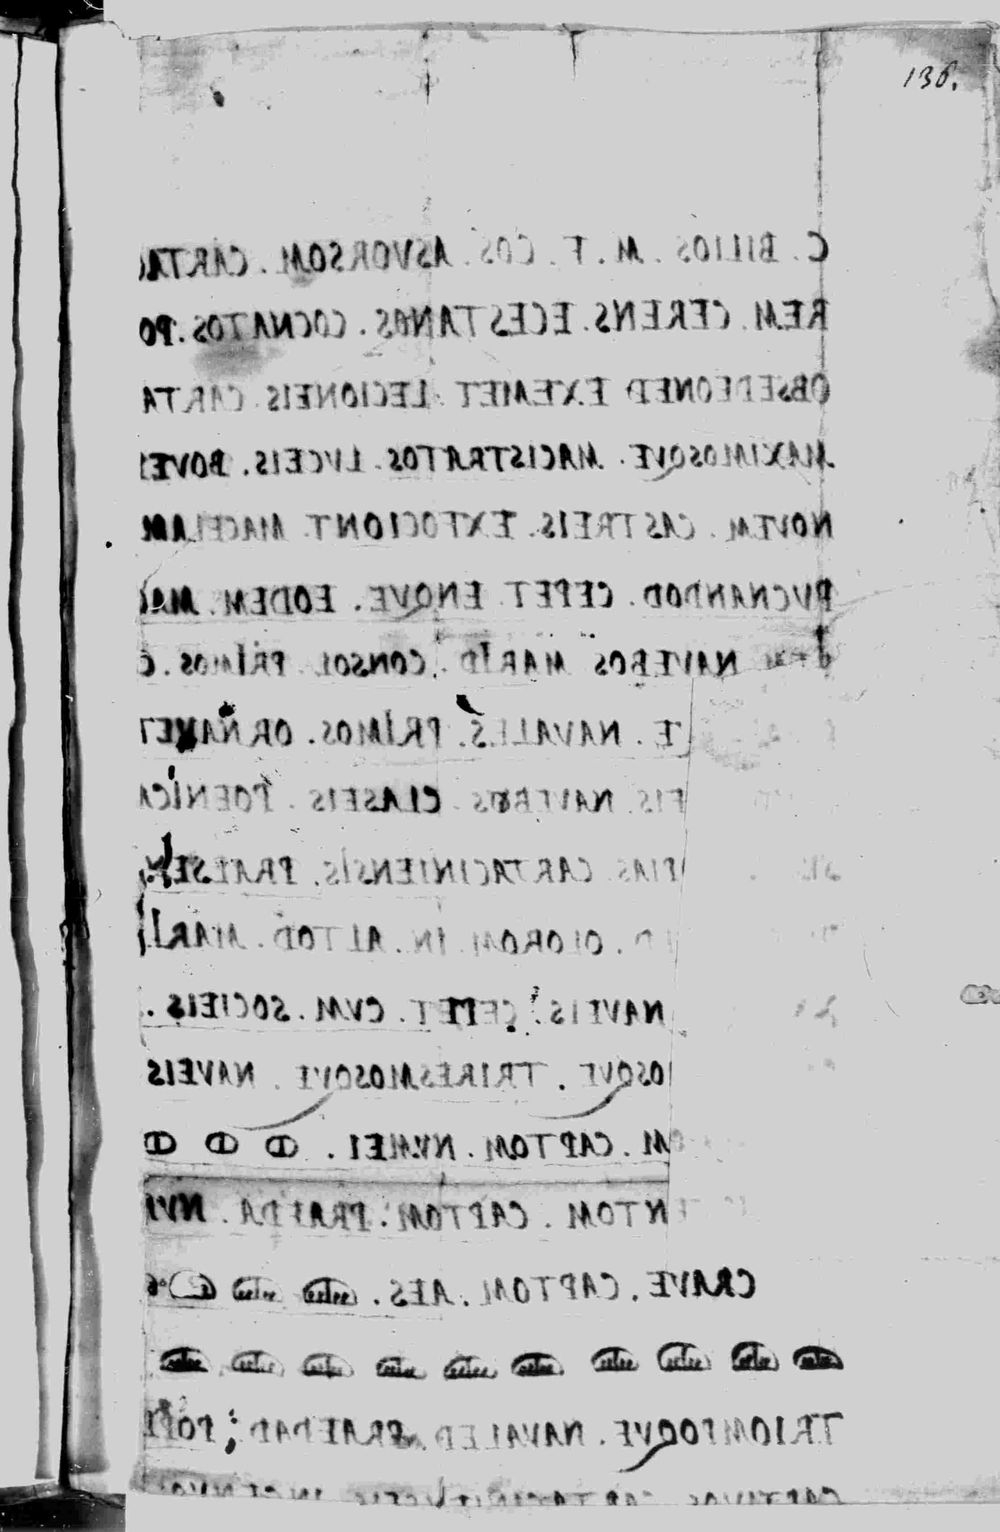 136.
C. BILIOS. M. F. COS. ASVORSOM. CARTAC
REM. CERENS. ECESTANOS. COCNATOS. PO
OBSEDEONED EXEMET. LECIONEIS. CARTA
MAXIMOSQVE. MACISTRATOS. LVCEIS. BOVEI
NOVEM. CASTREIS. EXFOCIONT. MACELAM
PVCNANDOD. CEPET. ENQVE. EODEM. MAC
NAVEBOS MARID. CONSOL PRIMOS. C
E. NAVALES. PRIMOS. ORNAVET
EIS. NAVEBOS CLASEIS. POENICA
PIAS CARTACINIENSIS. PRAESEN
D. OLOROM. IN. ALTOD. MARI
NAVEIS. CEPET. CVM. SOCIEIS.
OSQVE. TRIRESMOSQVE. NAVEIS
OM. CAPTOM. NVMEI. ↀ ↀ ↀ
NTOM. CAPTOM. PRAEDA. NVM
CRAVE. CAPTOM. AES.
TRIOMPOQVE. NAVALED. PRAEDAD; POPL